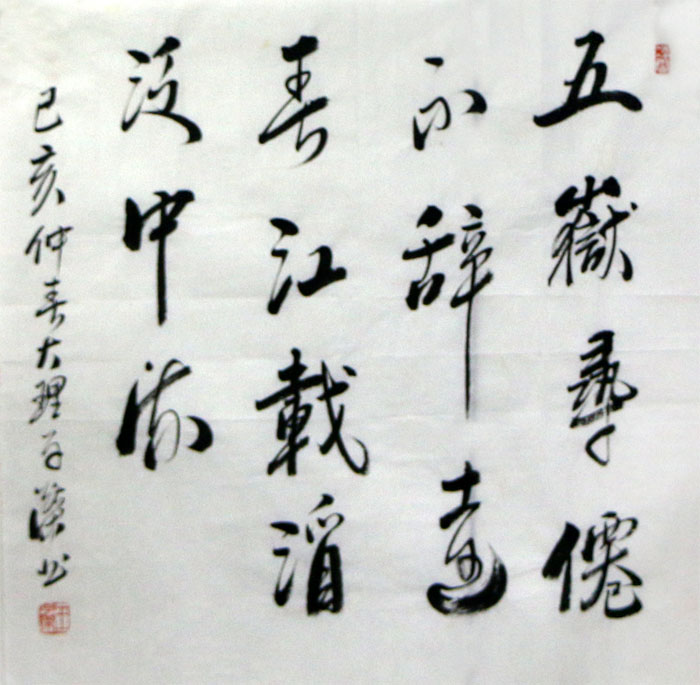 五嶽尋僊
不辭遠
春江載酒
泛中流
己亥仲春大理漢书